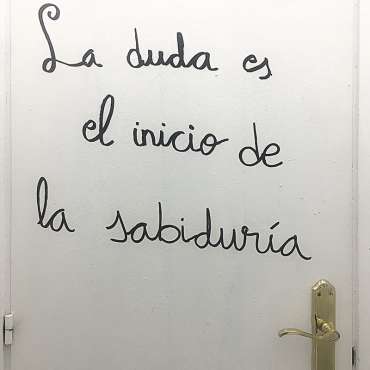 La duda es
el inicio de
la sabiduría